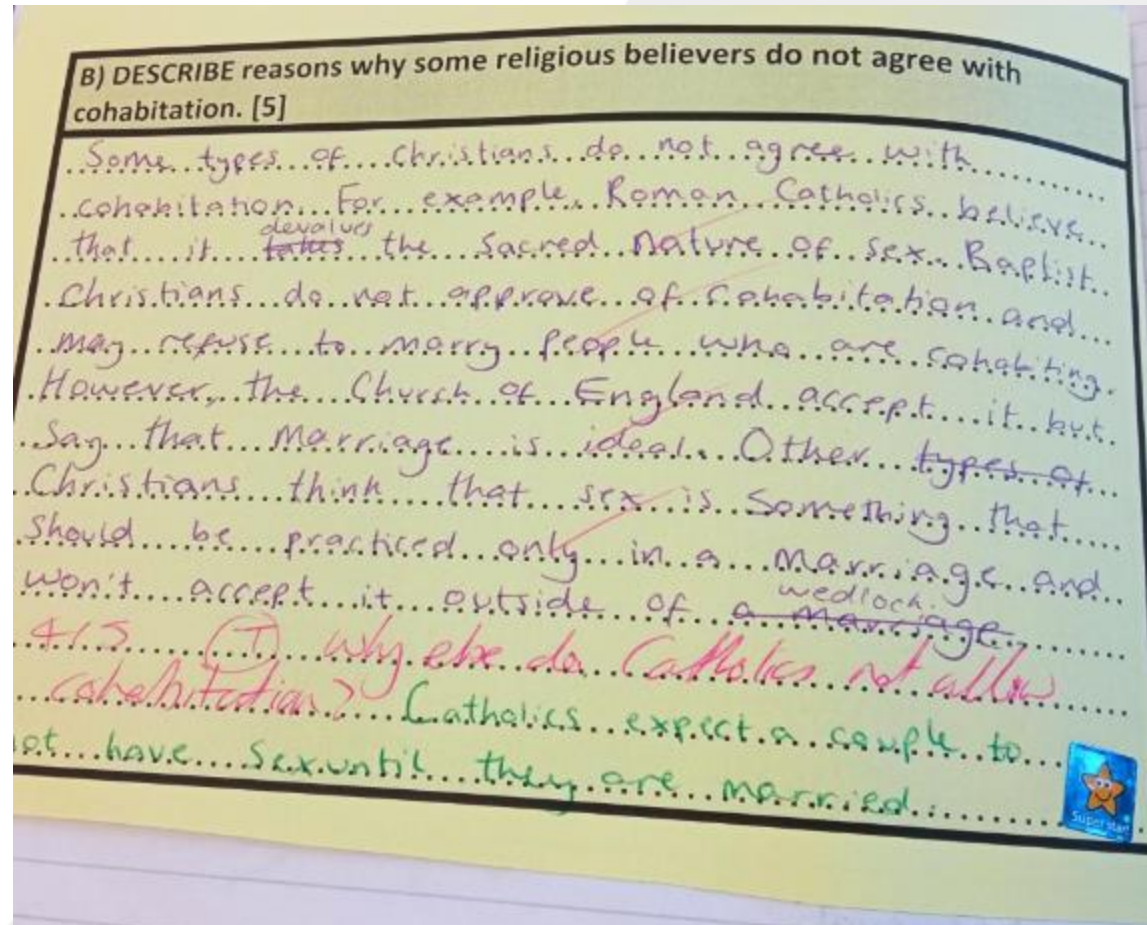 B) DESCRIBE reasons why some religious believers do not agree with
cohabitation. [5]
Some types of Christians do not agree with
cohabitation. For example, Roman Catholics believe
that it devalues takes the sacred nature of sex. Baptist
Christians do not approve of cohabitation and
may refuse to marry people who are cohabiting.
However, the Church of England accept it but
say that marriage is ideal. Other types of
Christians think that sex is something that
should be practiced only in a marriage and
won't accept it outside of wedlock. a marriage.
4/5 (T) Why else do Catholics not allow
cohabitation? Catholics expect a couple to
not have sex until they are married.
Superstar